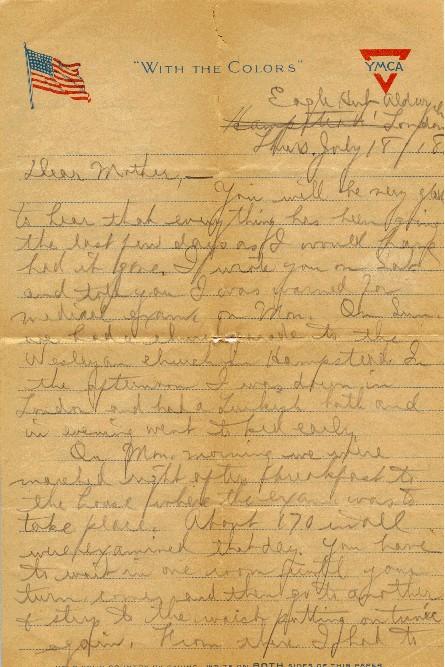 "WITH THE COLORS"
YMCA
Eagle Hut Aldwych
Hampstead London
Thurs, July 18/18
Dear Mother,—
You will be very glad
to hear that everything has been going
the last few days as I would have
had it gone. I wrote you on Sat.
and told you I was warned for
medical exam on Mon. On Sun.
we had a church parade to the
Wesleyan church in Hampstead. In
the afternoon I was down in
London and had a Turkish bath and
in evening went to bed early.
On Mon. morning we were
marched right after breakfast to
the house where the exam was to
take place. About 170 in all
were examined that day. You have
to wait in one room until your
turn comes and then go to another
& strip to the waist putting on tunic
again. From there I had to
BOTH SIDES OF THIS PAPER